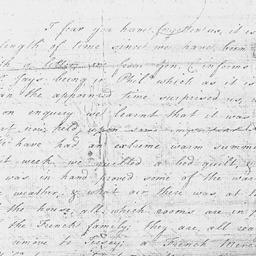 I fear you have forgotten us, it is
length of time since we have been
with a letter from you, & informs
fays being in Phila which as it is
in the appointed time surprised us,
on enquiry we learnt that it was
not held, upon some
have had an extreme warm summer
week we quilted a bed quilt,
was in hand proved some of the wa
weather, & what air there was at
the house, all which rooms are in
the French family; they are, all rea
remove to Jersey; a French